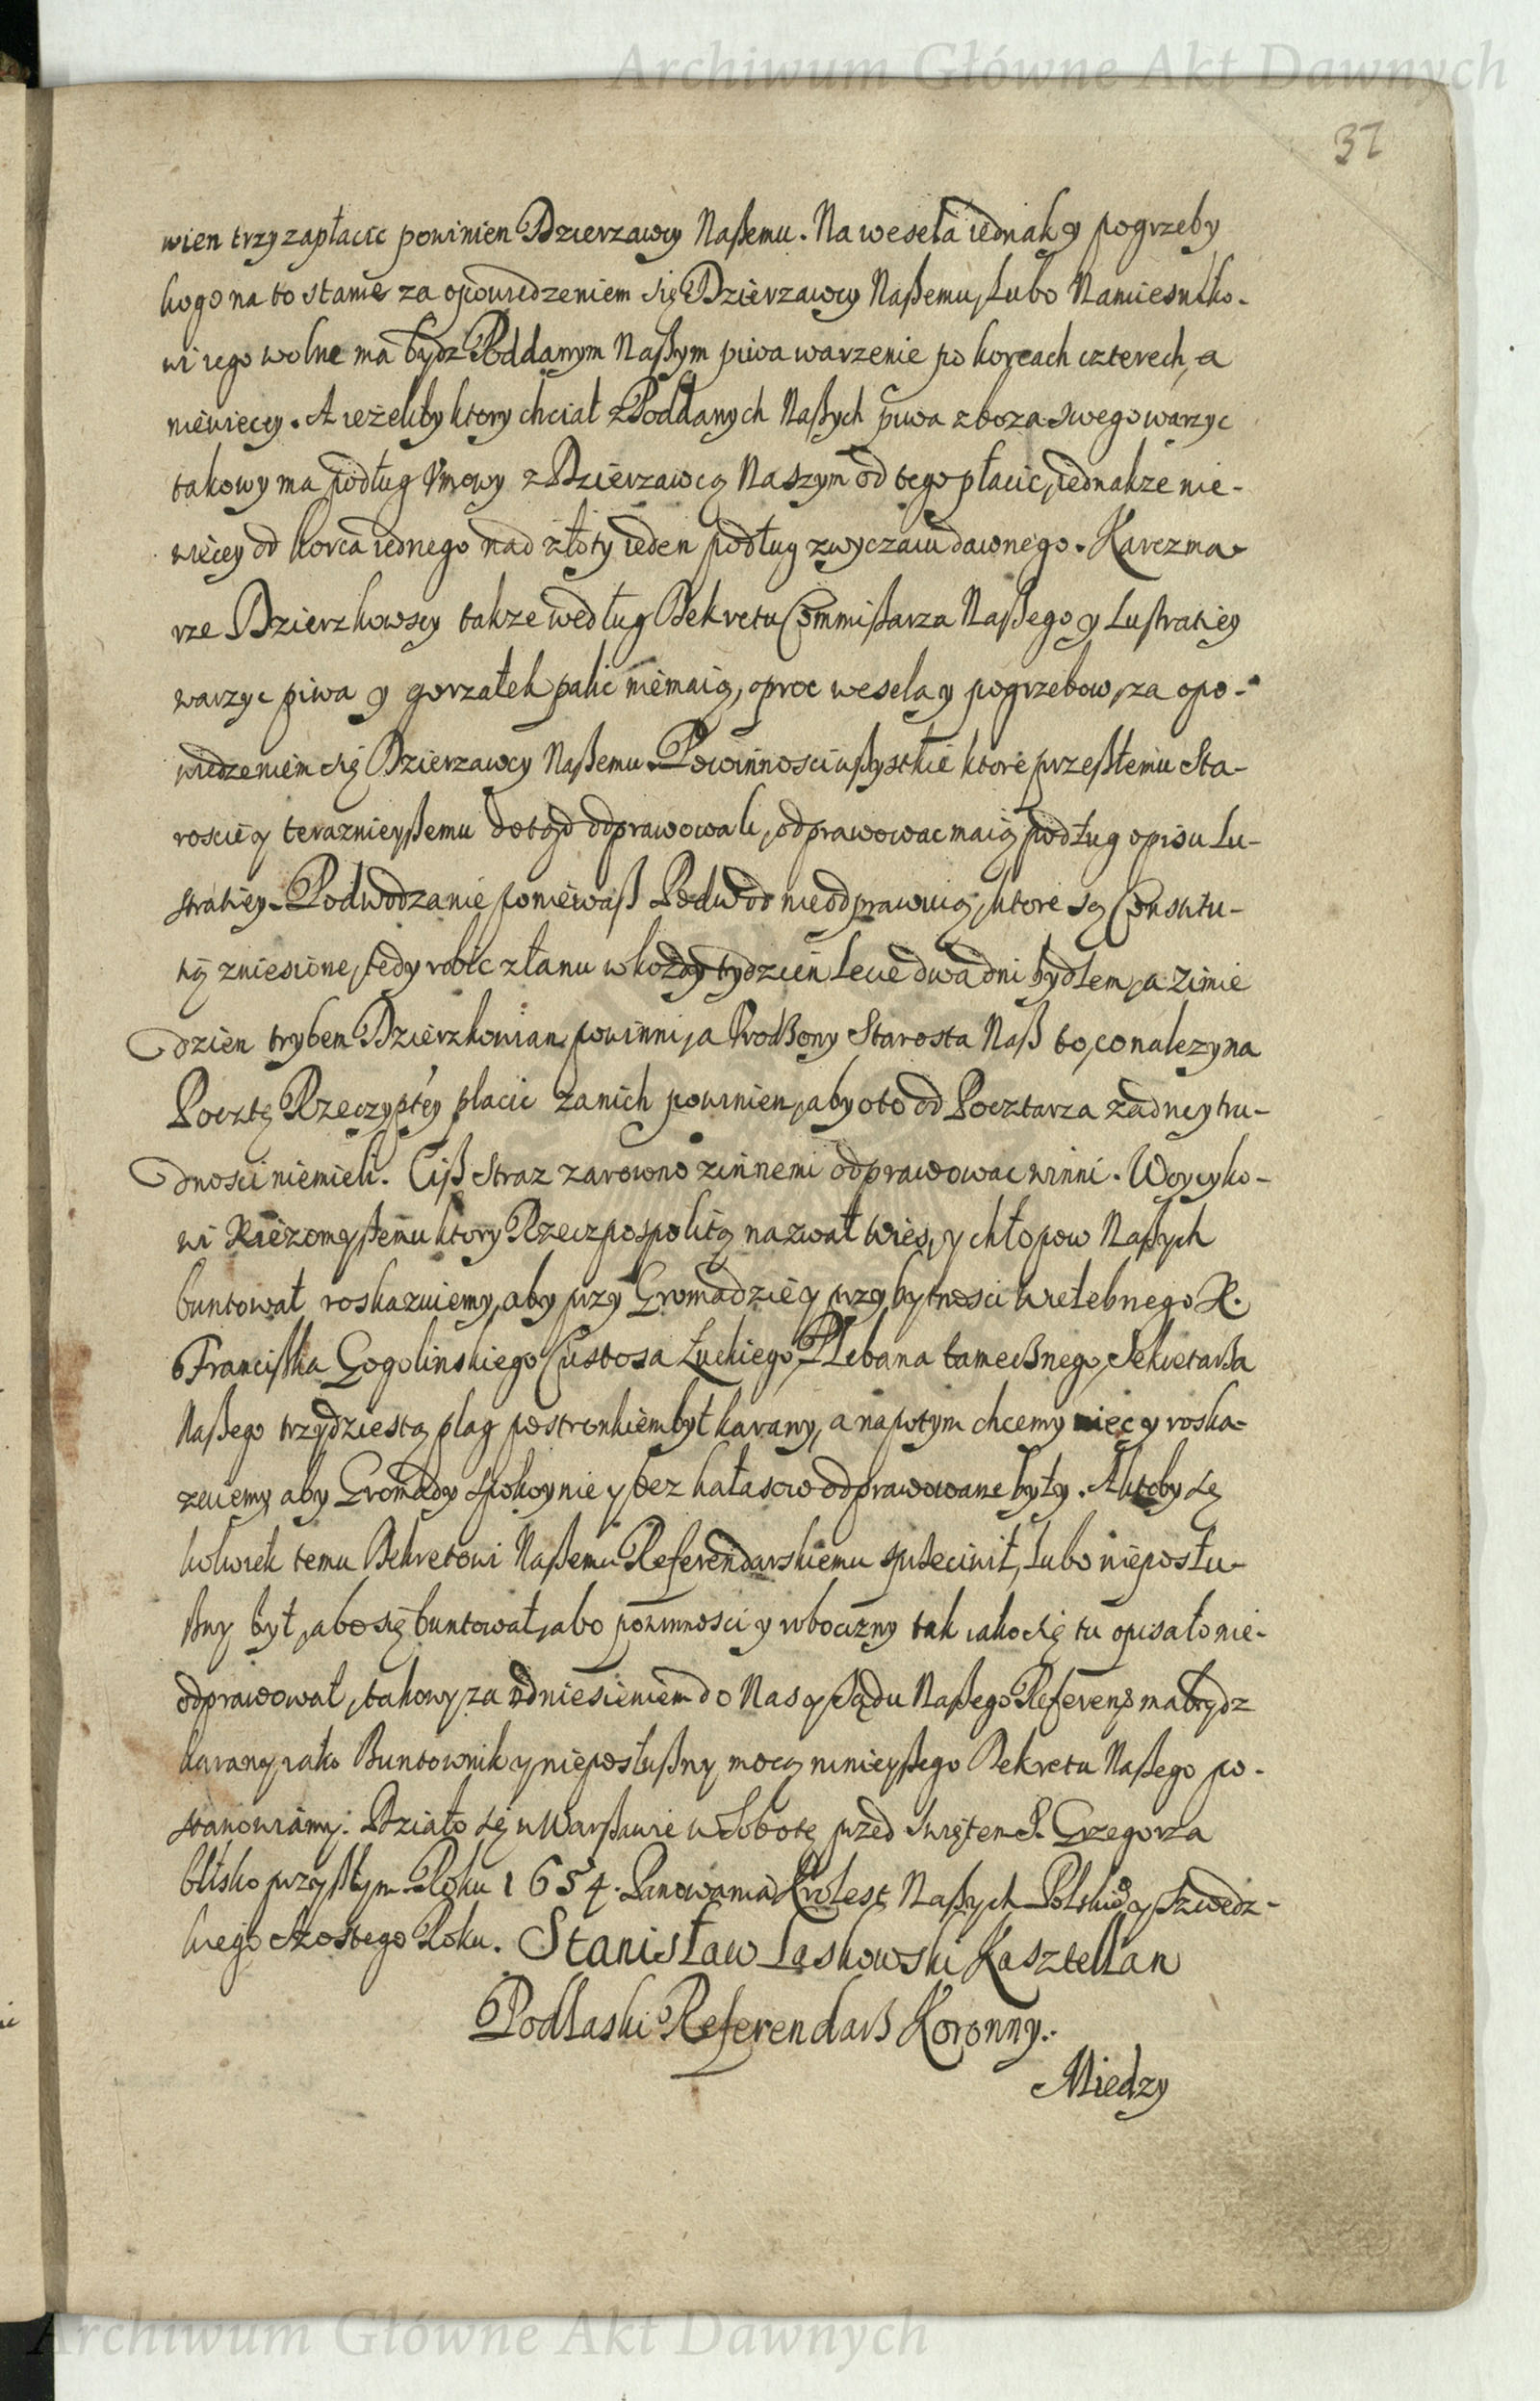 Archiwum Główne Akt Dawnych
37
wien trzy zapłacic powinien Dzierzawcy Naßemu. Na wesela iednak y pogrzeby
kogo na to stanie za opowiedzeniem się Dzierzawcy Naßemu, lubo Namiesniko-
wi iego wolne ma bydz Poddanym Naßym piwa warzenie po korcach czterech, a
niewiecey. A ieżeliby ktory chciał z Poddanych Naßych piwa z boza swego warzyc
takowy ma podług Vmowy z Dzierzawcą Naszym od tego płacic, iednakze nie-
więcey od korca iednego nad złoty ieden podług zwyczaiu dawnego. Karczma-
rze Dzierzkowscy takze według Dekretu Commißarza Naßego y Lustratiey
warzyc piwa y gorzałek palic niemaią, oproc wesela y pogrzebow, za opo-
wiedzeniem się Dzierzawcy Naßemu. Powinnosci wßystkie ktore przeßłemu Sta-
roscie y teraznieyßemu dotąd odprawowali, odprawowac maią podług opisu Lu-
stratiey. Podwodzanie poniewaß Podwod nieodprawuią, ktore są Constitu-
tią zniesione, tedy robic z łanu w kozdy tydzien lecie dwa dni bydłem, a zimie
dzien trybem Dzierzkowian powinni, a Vrodzony Starosta Naß to, co nalezy na
Pocztę Rzeczyptey placic za nich powinien, aby oto od Pocztarza żadney tru-
dnosci niemieli. Ciß Straz zarowno z innemi odprawowac winni. Woycyko-
wi Niezomyßemu ktory Rzeczpospolitą nazwał wies, y chłopow Naßych
buntował roskazuiemy, aby przy Gromadzie y przy bytnosci Wielebnego X.
Franciska Gogolinskiego Custosa Łuckiego, Plebana tameßnego, Sekretarßa
Naßego trzydziestą plag postronkiem był karany, a napotym chcemy miec y roska-
zuiemy, aby Gromady spokoynie y bez hałasow odprawowane były. A ktoby się
kolwiek temu Dekretowi Naßemu Referendarskiemu sprzeciwił, lubo nieposłu-
ßny był, abo się buntował, abo powinnosci y robocizny tak iako się tu opisało nie-
odprawował, takowy za odniesieniem do Nas y Sądu Naßego Referen: ma bydz
karany iako Buntownik y nieposłußny mocą ninieyßego Dekretu Naßego po-
stanowiamy. Działo się w Warßawie w Sobotę przed swiętem S. Grzegorza
blisko przyßłym Roku 1654. Panowania Krolest Naßych Polskie° y Szwedz-
kiego szostego Roku. Stanisław Laskowski Kasztellan
Podlaski Referendarß Koronny.
Miedzy
Archiwum Główne Akt Dawnych